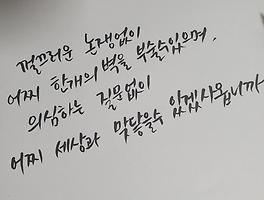 껄끄러운 논쟁없이
어찌 한개의 벽을 부술수있으며,
의심하는 질문없이
어찌 세상과 맞닿을수 있겠사옵니까